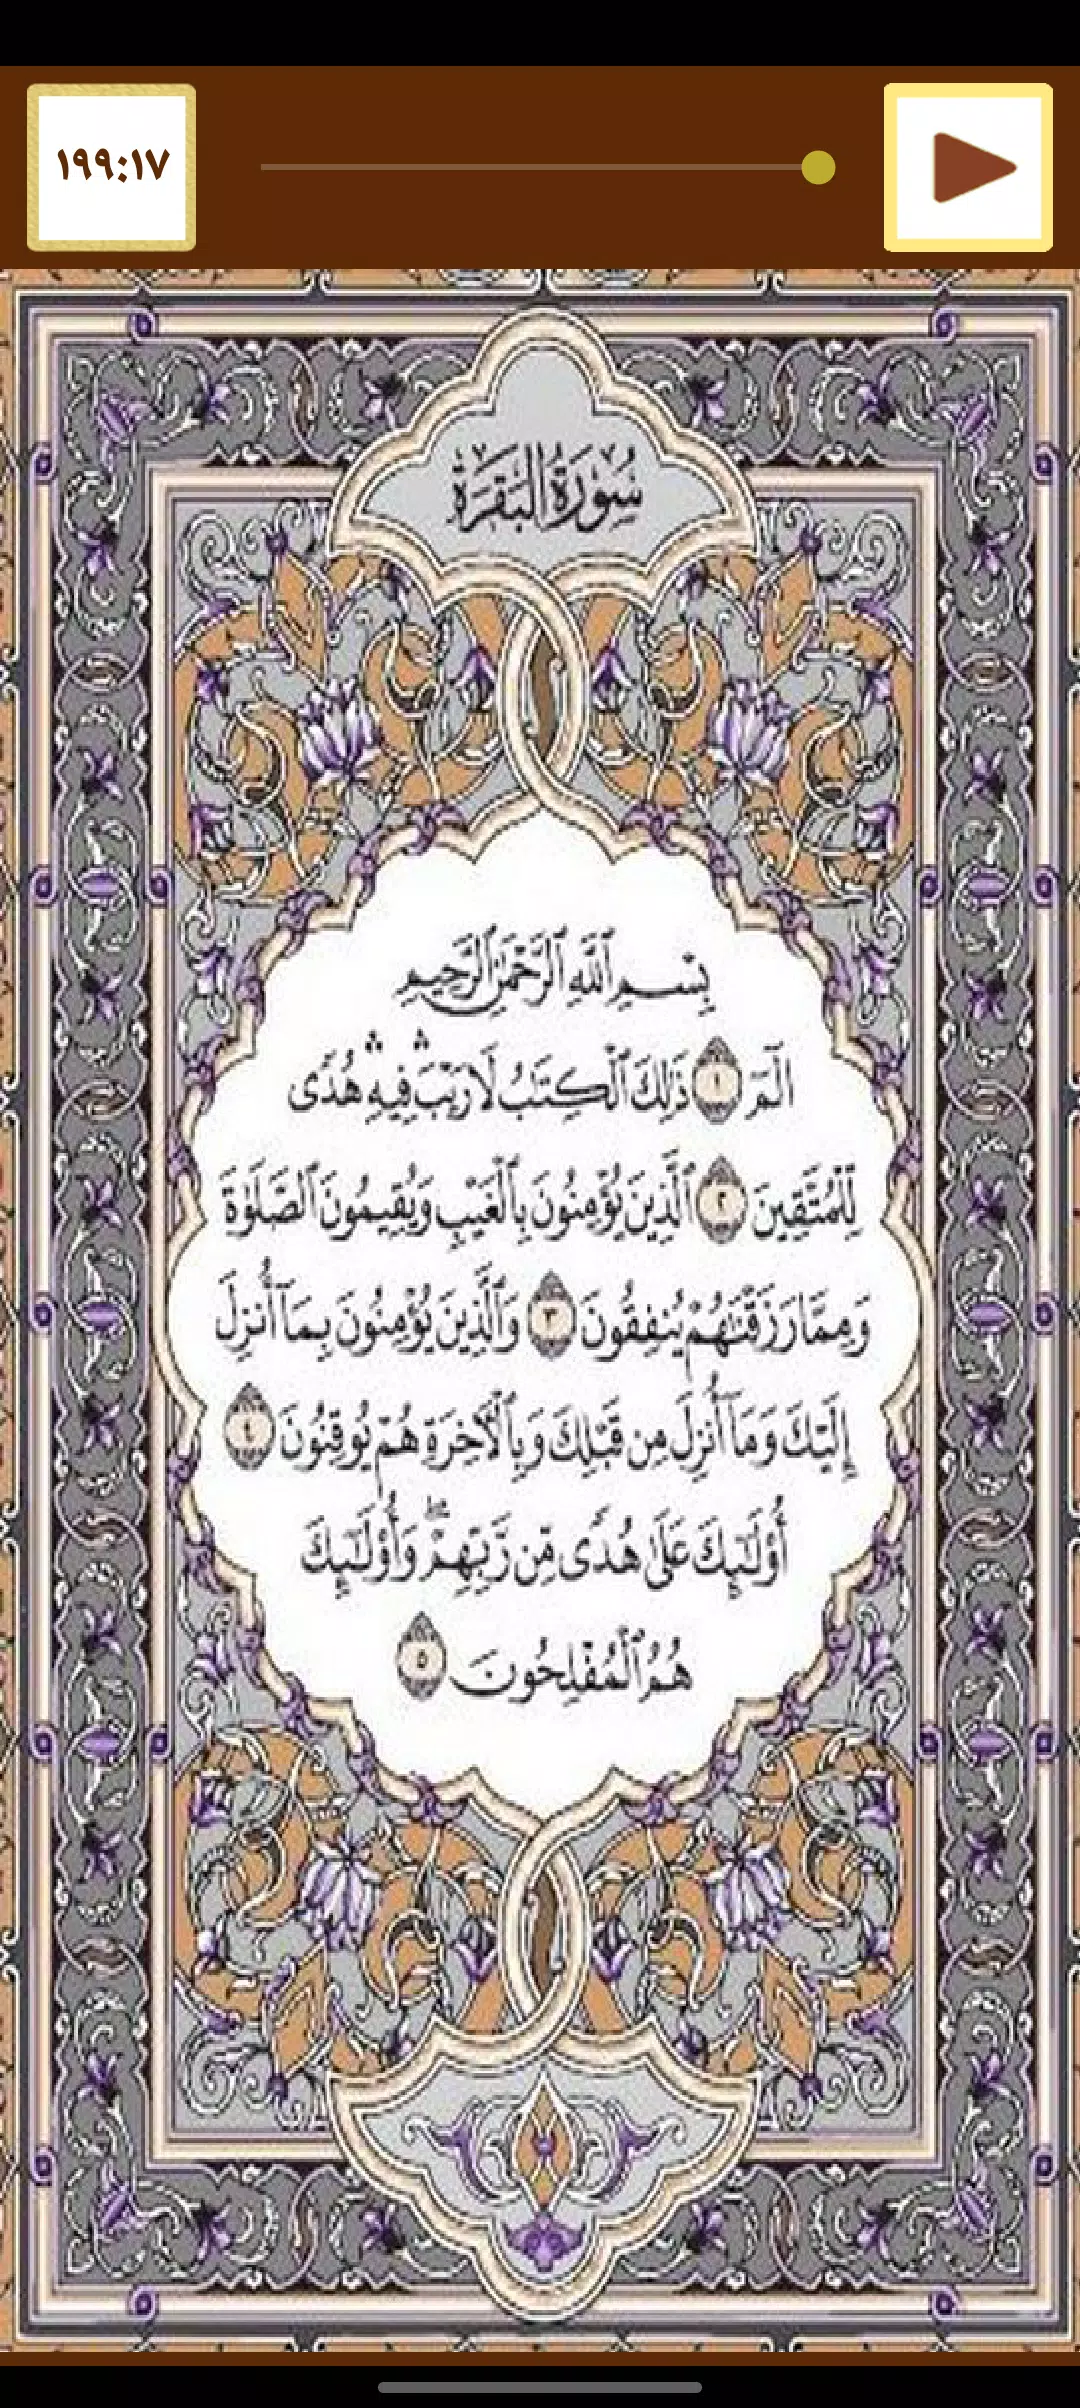 ١٩٩:١٧
سُورَةُ البَقَرَةِ
بِسْمِ ٱللَّهِ ٱلرَّحْمَٰنِ ٱلرَّحِيمِ
الٓمٓ ١ ذَٰلِكَ ٱلْكِتَٰبُ لَا رَيْبَ ۛ فِيهِ ۛ هُدًى
لِّلْمُتَّقِينَ ٢ ٱلَّذِينَ يُؤْمِنُونَ بِٱلْغَيْبِ وَيُقِيمُونَ ٱلصَّلَوٰةَ
وَمِمَّا رَزَقْنَٰهُمْ يُنفِقُونَ ٣ وَٱلَّذِينَ يُؤْمِنُونَ بِمَآ أُنزِلَ
إِلَيْكَ وَمَآ أُنزِلَ مِن قَبْلِكَ وَبِٱلْءَاخِرَةِ هُمْ يُوقِنُونَ ٤
أُو۟لَٰٓئِكَ عَلَىٰ هُدًى مِّن رَّبِّهِمْ ۖ وَأُو۟لَٰٓئِكَ
هُمُ ٱلْمُفْلِحُونَ ٥